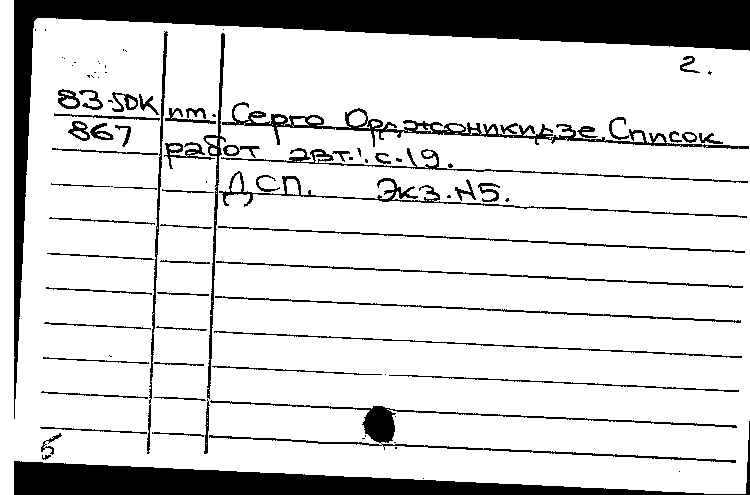 2.
83-5ДК пт. Серго Орджоникидзе. Список
867 работ авт.: с.19.
ДСП. Экз. N5.
5